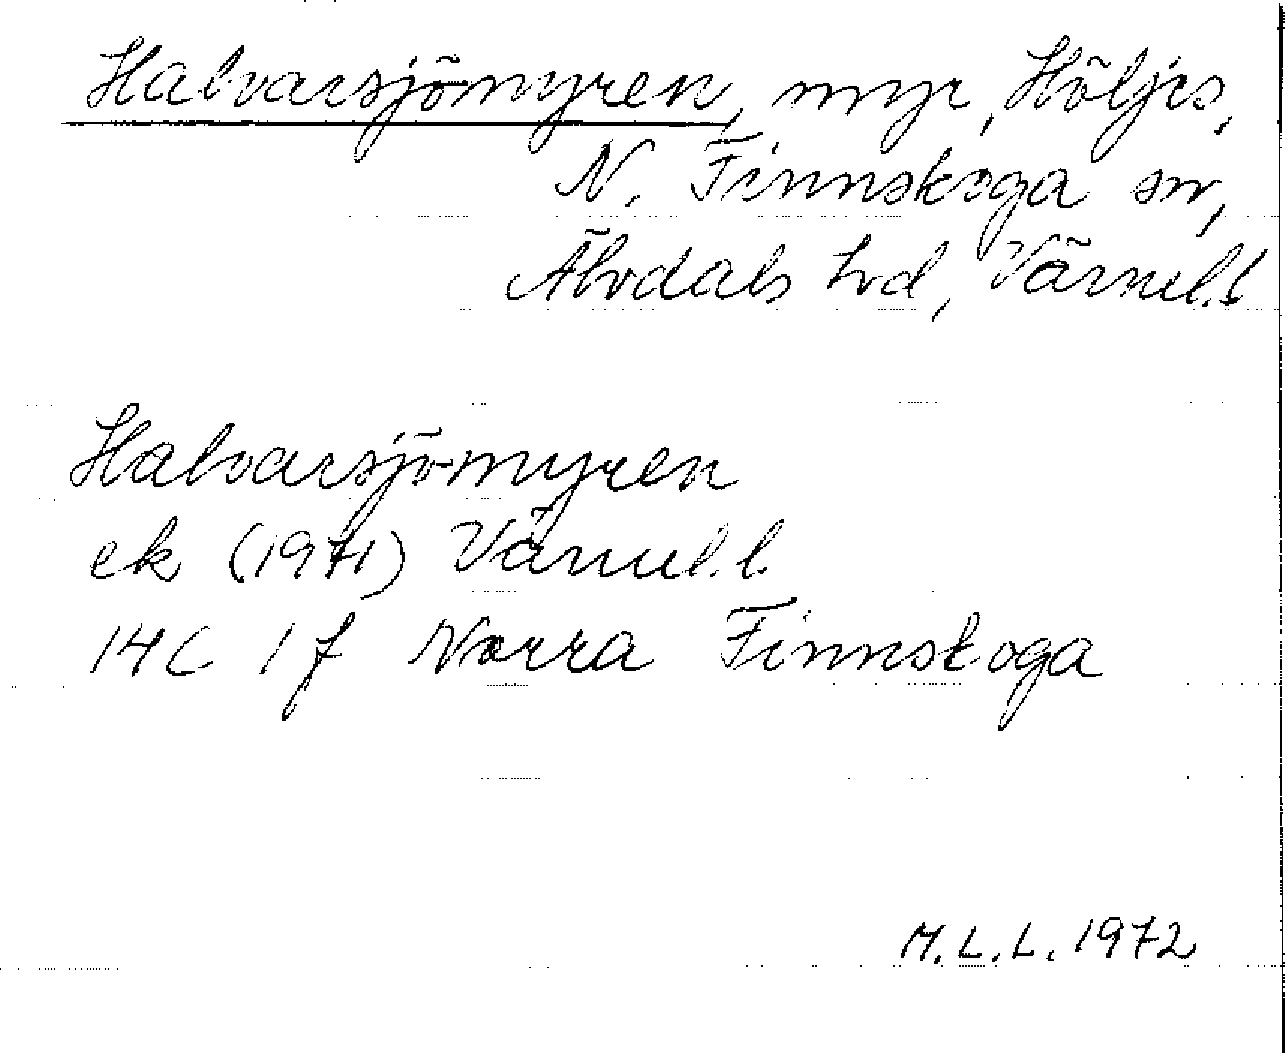 Halvarsjömyren, myr, Höljes,
N. Finnskoga sn,
Älvdals hd, Värml.l
Halvarsjömyren
ek (1971) Värml.l.
14C 1f Norra Finnskoga
M.L.L. 1972